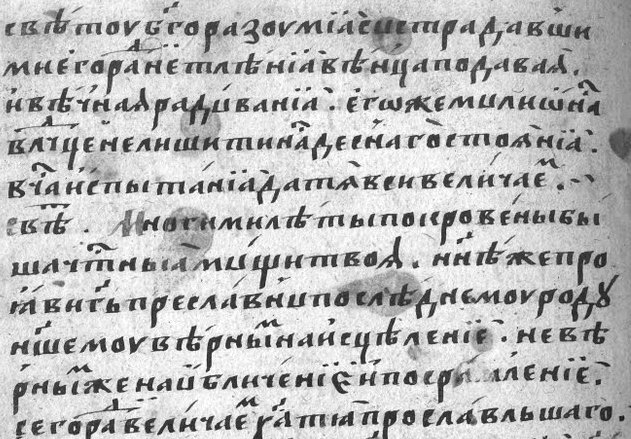 свѣтоу бг҃оразоумїа є҆сте традавши
мнѣ горанетлѣнїа вѣнца подавая̀.
и҆ вѣчная радованїа̀. є҆гѡже ми лишѡна
влⷣчце не лишити на десна́го стоя́нїа̀.
в ча́с и҆спыта́нїа да тя̀ вси велича́еⷨ.
свѣ. Многими лѣты покрове́ны бы
ша чⷭ҇тныа̀ мо́щи твоя̀. нн҃ѣ же про
ꙗ҆ви гь҇ пресла́вни послѣ́днемоу родꙋ̀
н҃шемоу вѣ́рныⷨ на и҆сцѣле́нїѐ. невѣ
рныⷨ же на ѡ҆бличе́нїѐ и҆ посрамле́нїѐ.
сего ра́ⷣ велича́еⷨ ꙋ҆ тя̀ просла́вльшаго.